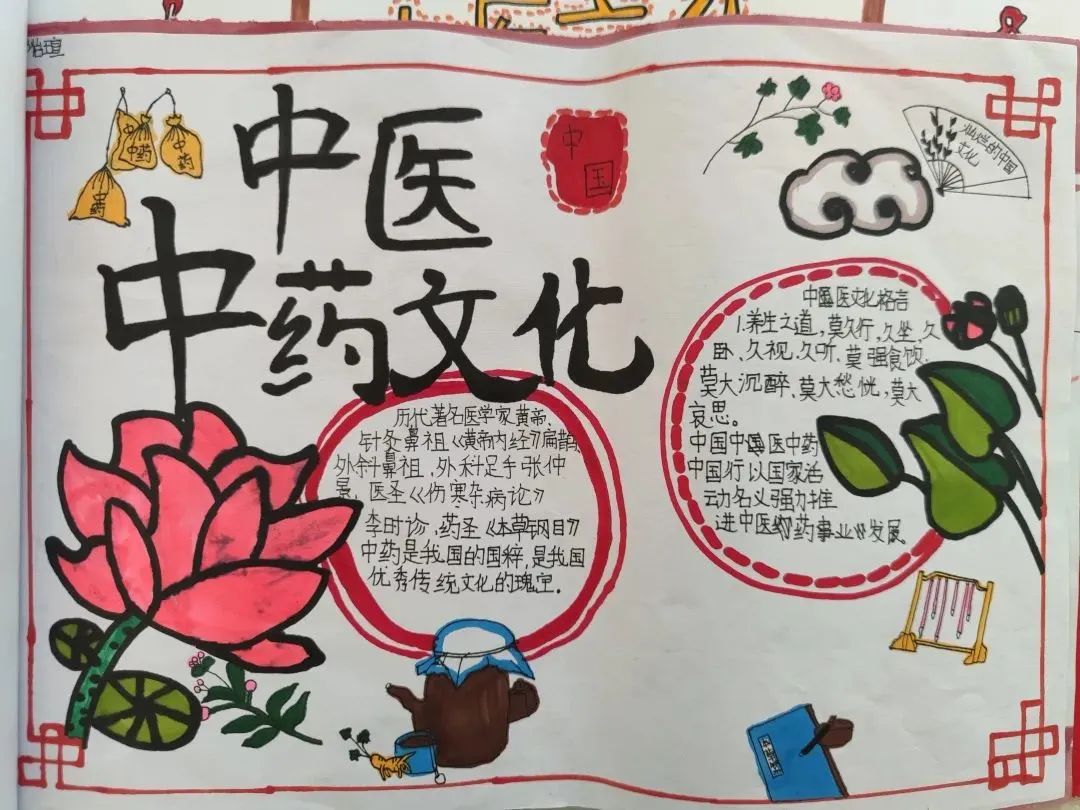 怡瑄
中药
中药
中药
中医
中药文化
中国
灿烂的中国
文化
历代著名医学家黄帝、
针灸鼻祖《黄帝内经》扁鹊
外科鼻祖，外科足手张仲
景，医圣《伤寒杂病论》
李时诊，药圣《本草钢目》
中药是我国的国粹，是我国
优秀传统文化的瑰宝。
中国医文化格言
1.养生之道，莫久行，久坐，久
卧、久视、久听、莫强食饮、
莫大沉醉、莫大愁恍，莫大
哀思。
中国中国医中药
中国行以国家活
动名义强力推
进中医《药事业》发展。